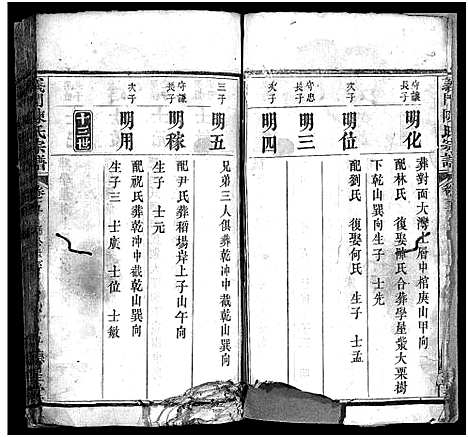 義門陳氏宗譜
守謙
長子
明化
葬對面大灣上層中棺庚山甲向
配林氏 復娶陳氏合葬學屋柴大栗樹
下乾山巽向生子 士先
次子
明位
配劉氏 復娶何氏 生子 士孟
守忠
長子
明三
二子
明四
三子
明五
兄弟三人俱葬乾冲中截乾山巽向
守謙
長子
明稼
配尹氏葬稻場岸上子山午向
生子 士元
次子
明用
配祝氏葬乾冲中截乾山巽向
生子三 士廣 士位 士敏
十三世
義門陳氏宗譜